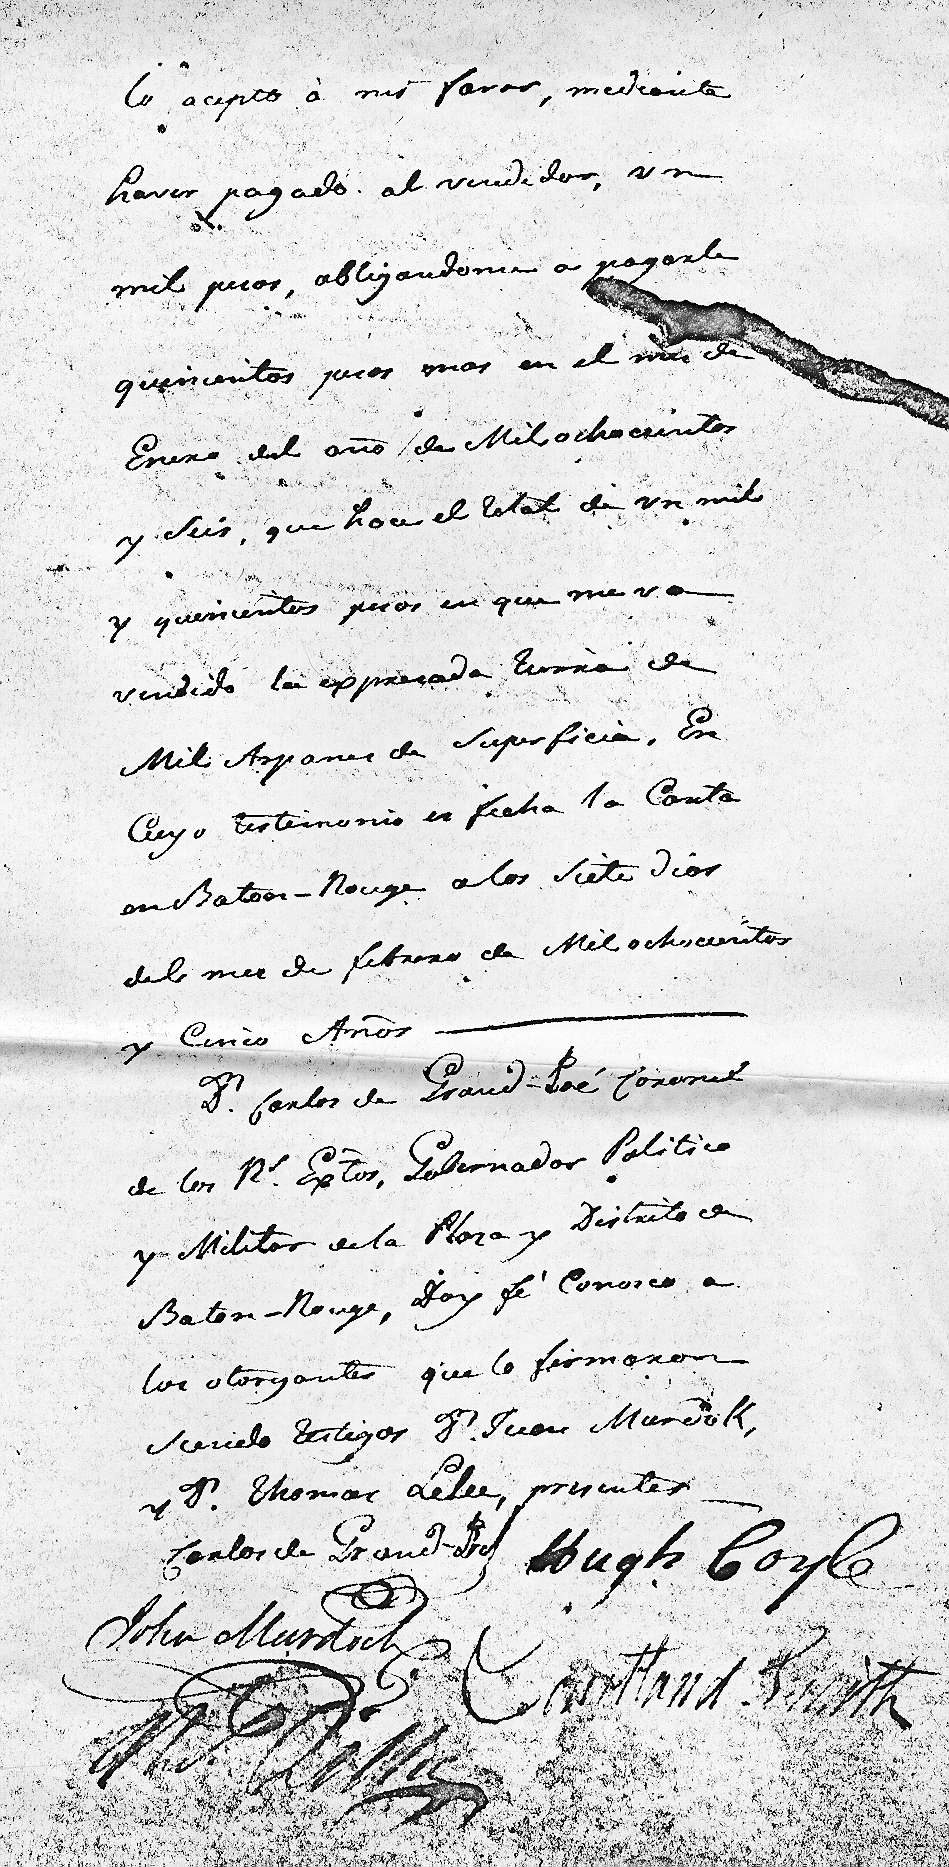 lo acepto à mi favor, mediante
haver pagado al vendedor, un
mil pesos, obligandome a pagarle
quinientos pesos mas en el mes de
Enero del año de Mil ochocientos
y Seis, que hace el total de un mil
y quinientos pesos en que me va
vendido la expresada tierra de
Mil Arpanes de Superficie, En
Cuyo testimonio es fecha la Carta
en Baton-Rouge a los Siete dias
del mes de febrero de Mil ochocientos
y Cinco Años
Dn. Carlos de Grand-Pré Coronel
de los Rs. Extos, Gobernador Politico
y Militar de la Plaza y Distrito de
Baton-Rouge, Doy fé Conosco a
los otorgantes que lo firmaron
Siendo testigos Dn. Juan Murdok,
y Dn. Thomas Lelee, presentes
Carlos de Grand-Pré Hugh Coyle
John Murdoch
Courtland Smith